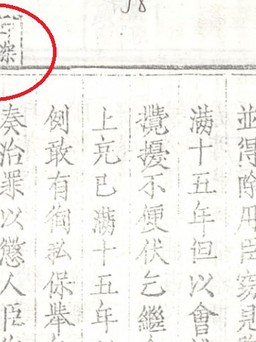 38
並得除用臣竊見
滿十五年但以會
攪擾不便伏乞繼
上充已滿十五年
例敢有徇私保舉
奏治罪以懲人臣